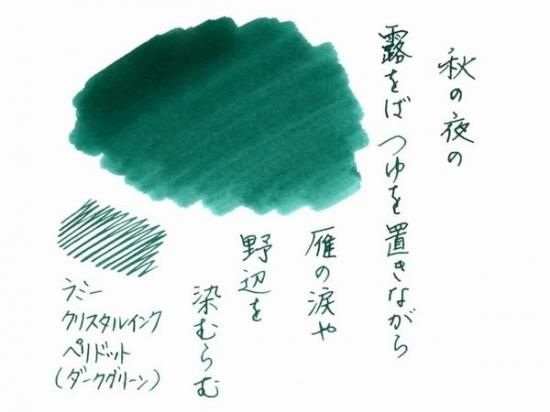 秋の夜の
露をば つゆを置きながら
雁の涙や
野辺を
染むらむ
ラミー
クリスタルインク
ペリドット
(ダークグリーン)